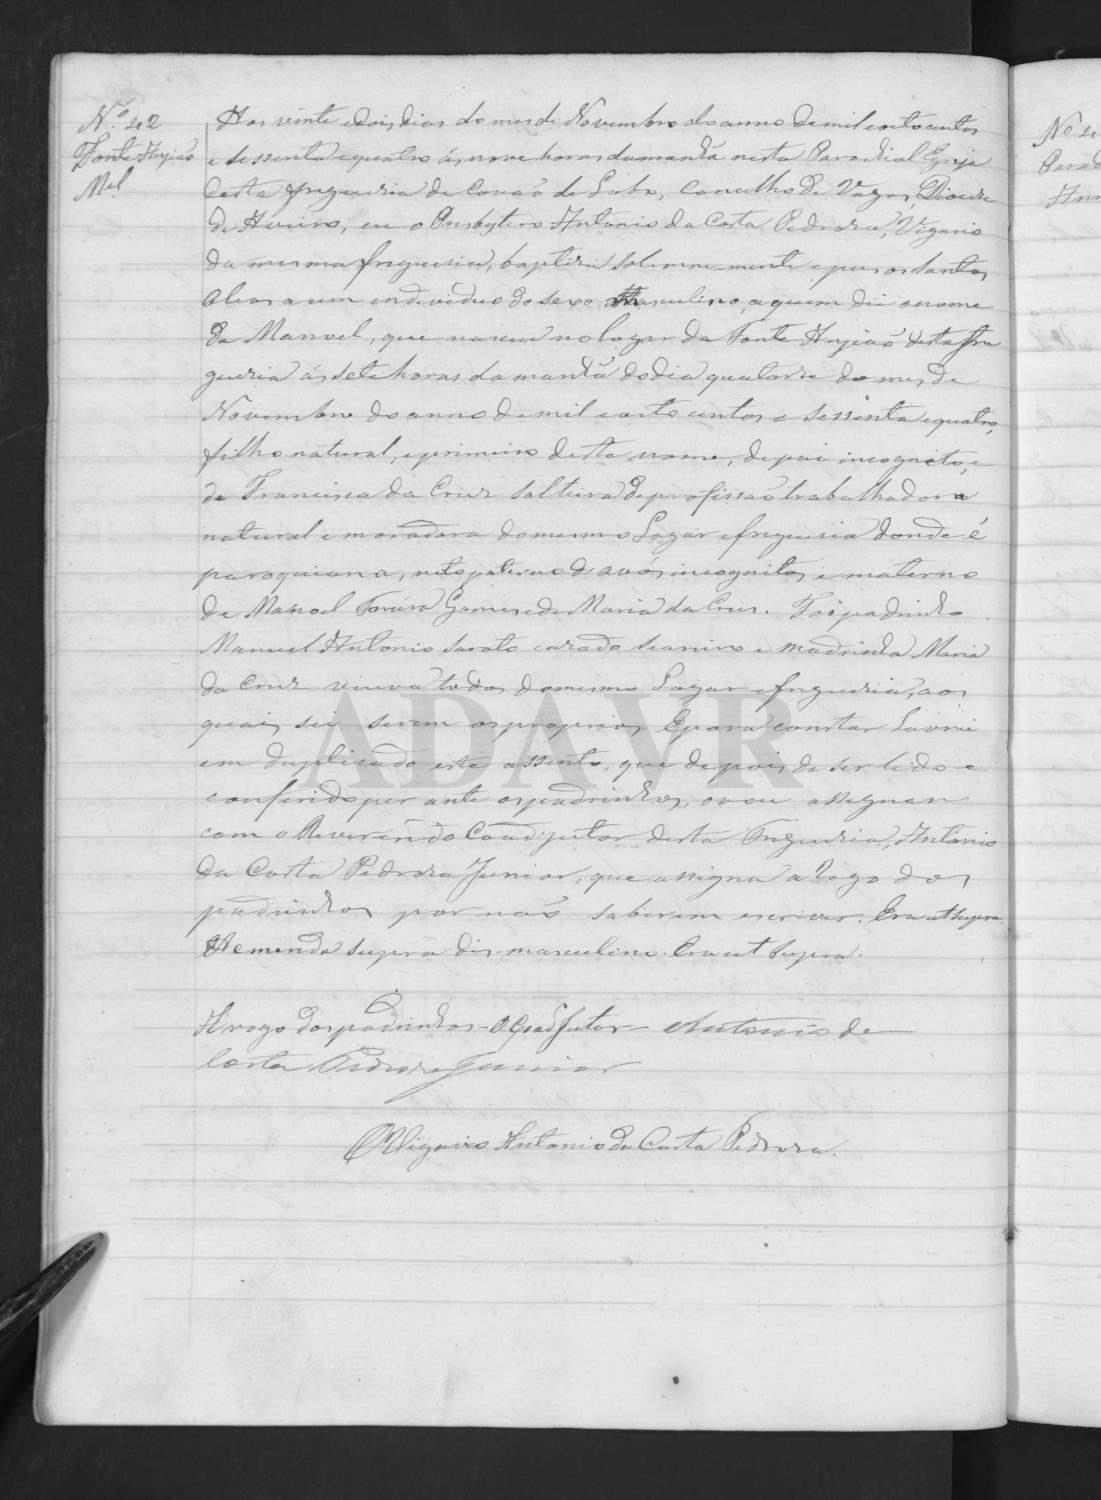 Nº 42
Fonte Angião
Mel
Aos vinte e dois dias do mes de Novembro do anno de mil e oito centos
e sessenta e quatro ás nove horas da manhã nesta Parochial Egreja
desta freguesia de Covão do Lobo, concelho de Vagos, Diocese
de Aveiro, eu o Presbytero Antonio da Costa Pedrosa, Vigario
da mesma freguesia, baptizei solemne-mente e pus os santos
oleos a um individuo do sexo masculino, a quem dei o nome
de Manoel, que nasceu no logar da Fonte Angião desta fre
guesia ás sete horas da manhã do dia quatorze do mes de
Novembro do anno de mil e oito centos e sessenta e quatro,
filho natural, e primeiro deste nome, de pai incognito, e
de Francisca da Cruz solteira de profissão trabalhadora
natural e moradora do mesmo Logar e freguesia donde é
paroquiana, neto paterno d avós incognitos e materno
de Manoel Gomes e de Maria da Cruz. Foi padrinho
Manuel Antonio casado e madrinha Maria
da Cruz viuva todos do mesmo Logar e freguesia, aos
quais sei serem os proprios. E para constar Lavrei
em duplicado este assento, que depois de ser lido e
conferido perante os padrinhos, o vou assignar
com o Reverendo Coadjutor desta Freguesia, Antonio
da Costa Pedrosa Junior, que assigna a Rogo dos
padrinhos por não saberem escrever. Era ut supra.
A emenda supra diz-masculino. Era ut supra.
A rogo dos padrinhos - O Coadjutor - Antonio da
Costa Pedrosa Junior
O Vigario Antonio da Costa Pedrosa.
ADAVR
Nº 4